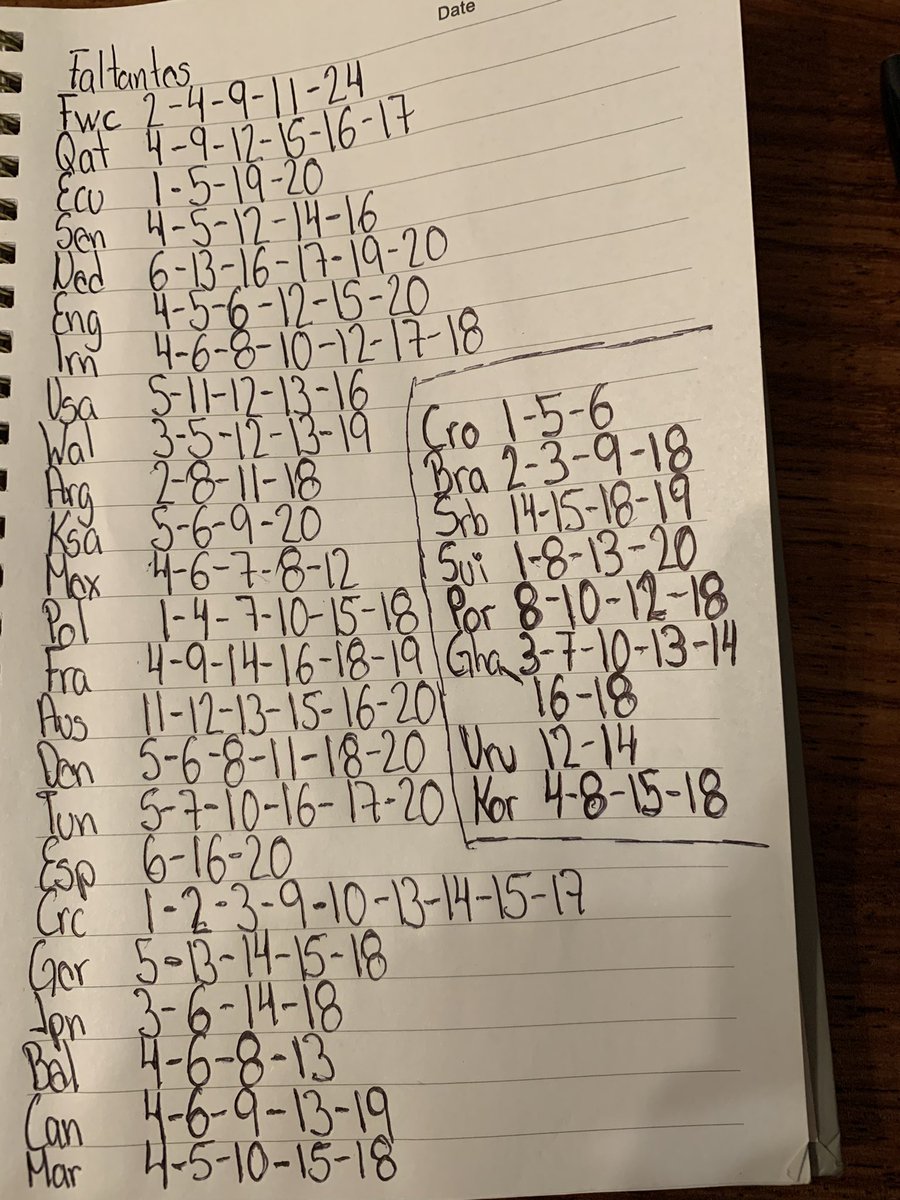 Date
Faltantes
Fwc 2-4-9-11-24
Qat 4-9-12-15-16-17
Ecu 1-5-19-20
Sen 4-5-12-14-16
Ned 6-13-16-17-19-20
Eng 4-5-6-12-15-20
Irn 4-6-8-10-12-17-18
Usa 5-11-12-13-16
Wal 3-5-12-13-19
Arg 2-8-11-18
Ksa 5-6-9-20
Mex 4-6-7-8-12
Pol 1-4-7-10-15-18
Fra 4-9-14-16-18-19
Aus 11-12-13-15-16-20
Den 5-6-8-11-18-20
Tun 5-7-10-16-17-20
Esp 6-16-20
Crc 1-2-3-9-10-13-14-15-17
Ger 5-13-14-15-18
Jpn 3-6-14-18
Bel 4-6-8-13
Can 4-6-9-13-19
Mar 4-5-10-15-18
Cro 1-5-6
Bra 2-3-9-18
Srb 14-15-18-19
Sui 1-8-13-20
Por 8-10-12-18
Gha 3-7-10-13-14
16-18
Uru 12-14
Kor 4-8-15-18